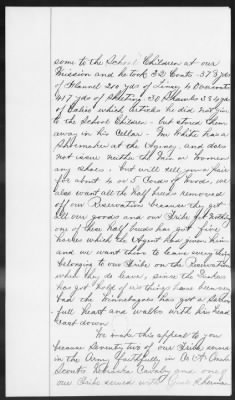 some to the School Children at our
Mission and he took 32 Coats - 37 3 yds
of Flannel 200 yds of Linsey 4
417 yds of Sheeting 30 Shawls 33 4 yds
of Calico which articles he did not give
to the School Children - but stored them
away in his Cellar. Mr White has a
Shoemaker at the Agency, and does
not issue neither the Men or Women
any Shoes, but will sell you a pair
for about 4 or 5 Cords of Wood, we
also want all the Half breeds removed
off our Reservation because they get
all our goods and our Tribe get nothing
one of these Half breeds has got five
horses which the Agent has given him
and we want them to leave every thing
belonging to our Tribe on the Reservation
when they do leave, since the
has got hold of us things have been very
bad the Winnebagoes has got a sorrow
-ful heart and walks with his head
cast down.
We make this appeal to you
because Seventy two of our Tribe served
in the Army faithfully in Co A Omaha
Scouts Nebraska Cavalry and one of
our Tribe served with Genl Sherman